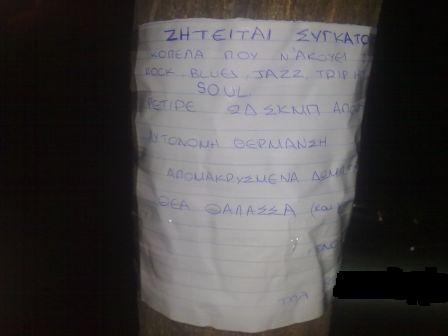 ΖΗΤΕΙΤΑΙ ΣΥΓΚΑΤΟ
ΚΟΠΕΛΑ ΠΟΥ Ν'ΑΚΟΥΕΙ
ROCK, BLUES, JAZZ, TRIP H
SOUL.
ΡΕΤΙΡΕ
ΑΥΤΟΝΟΜΗ ΘΕΡΜΑΝΣΗ
ΑΠΟΜΑΚΡΥΣΜΕΝΑ ΔΩΜ
ΘΕΑ ΘΑΛΑΣΣΑ (και
ΤΗΛ